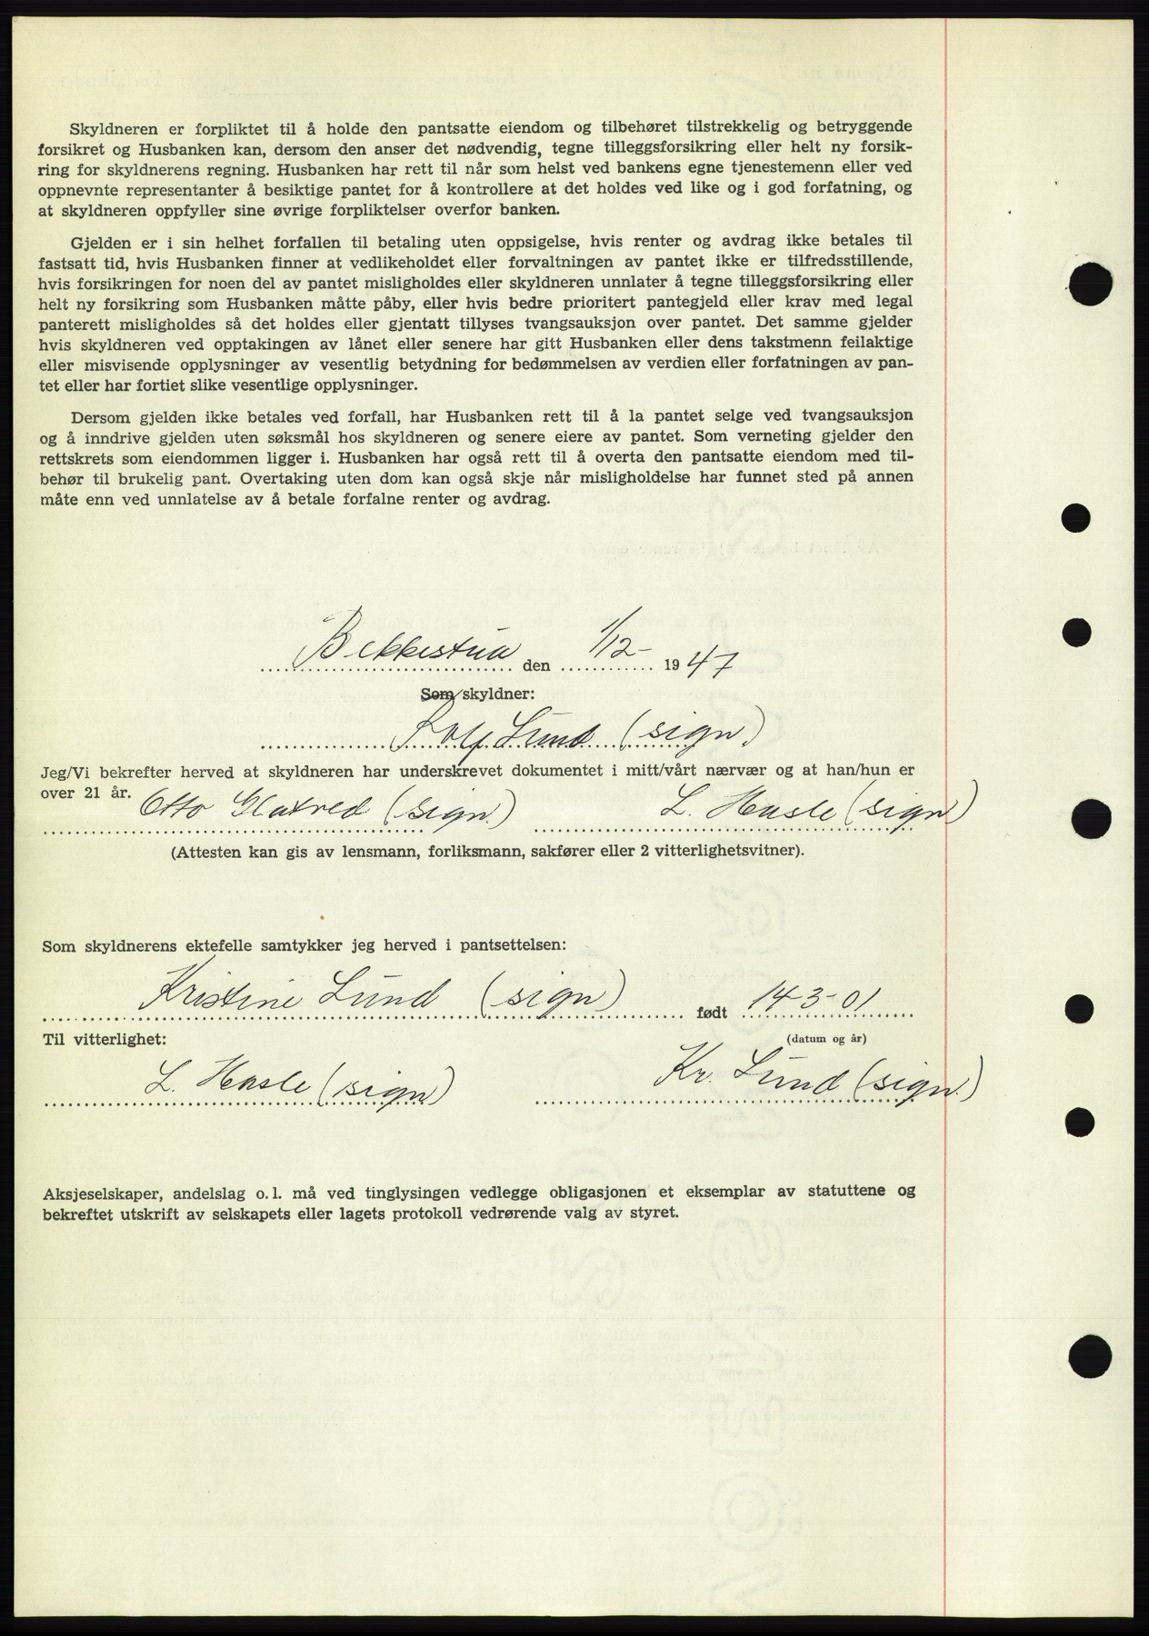 Skyldneren er forpliktet til å holde den pantsatte eiendom og tilbehøret tilstrekkelig og betryggende
forsikret og Husbanken kan, dersom den anser det nødvendig, tegne tilleggsforsikring eller helt ny forsik-
ring for skyldnerens regning. Husbanken har rett til når som helst ved bankens egne tjenestemenn eller ved
oppnevnte representanter å besiktige pantet for å kontrollere at det holdes ved like og i god forfatning, og
at skyldneren oppfyller sine øvrige forpliktelser overfor banken.
Gjelden er i sin helhet forfallen til betaling uten oppsigelse, hvis renter og avdrag ikke betales til
fastsatt tid, hvis Husbanken finner at vedlikeholdet eller forvaltningen av pantet ikke er tilfredsstillende,
hvis forsikringen for noen del av pantet misligholdes eller skyldneren unnlater å tegne tilleggsforsikring eller
helt ny forsikring som Husbanken måtte påby, eller hvis bedre prioritert pantegjeld eller krav med legal
panterett misligholdes så det holdes eller gjentatt tillyses tvangsauksjon over pantet. Det samme gjelder
hvis skyldneren ved opptakingen av lånet eller senere har gitt Husbanken eller dens takstmenn feilaktige
eller misvisende opplysninger av vesentlig betydning for bedømmelsen av verdien eller forfatningen av pan-
tet eller har fortiet slike vesentlige opplysninger.
Dersom gjelden ikke betales ved forfall, har Husbanken rett til å la pantet selge ved tvangsauksjon
og å inndrive gjelden uten søksmål hos skyldneren og senere eiere av pantet. Som verneting gjelder den
rettskrets som eiendommen ligger i. Husbanken har også rett til å overta den pantsatte eiendom med til-
behør til brukelig pant. Overtaking uten dom kan også skje når misligholdelse har funnet sted på annen
måte enn ved unnlatelse av å betale forfalne renter og avdrag.
Bekkestua den 1/12- 1947
Som skyldner:
Rolf Lund (sign)
Jeg/Vi bekrefter herved at skyldneren har underskrevet dokumentet i mitt/vårt nærvær og at han/hun er
over 21 år.
Otto (sign.) L. Hasle (sign)
(Attesten kan gis av lensmann, forliksmann, sakfører eller 2 vitterlighetsvitner).
Som skyldnerens ektefelle samtykker jeg herved i pantsettelsen:
Kristine Lund (sign) født 14-3-01
Til vitterlighet: (datum og år)
L. Hasle (sign) Kr. Lund (sign.)
Aksjeselskaper, andelslag o. l. må ved tinglysingen vedlegge obligasjonen et eksemplar av statuttene og
bekreftet utskrift av selskapets eller lagets protokoll vedrørende valg av styret.